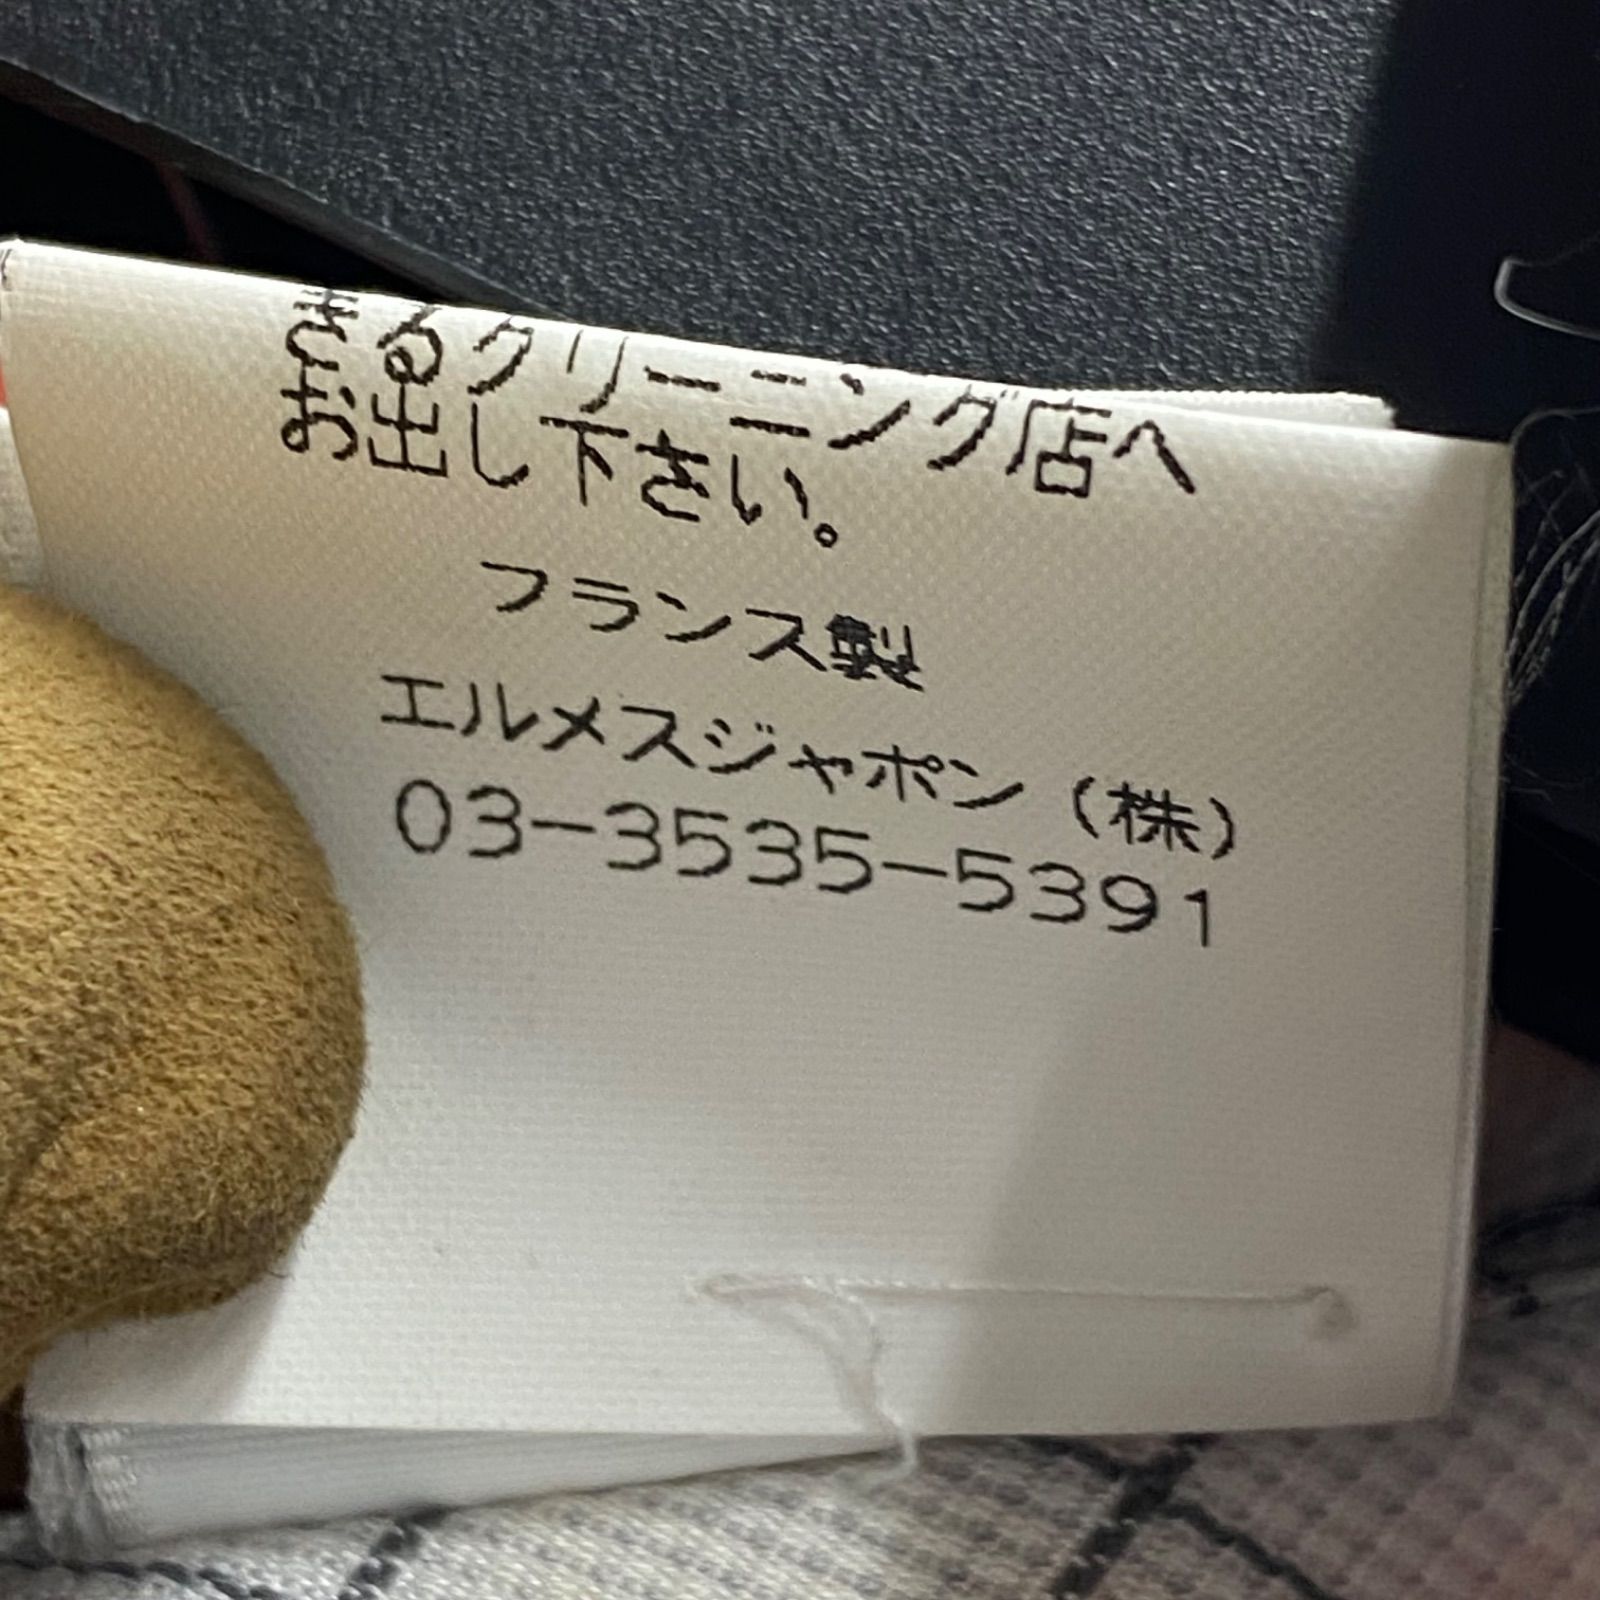 きるクリーニング店へ
お出し下さい。
フランス製
エルメスジャポン（株）
03-3535-5391